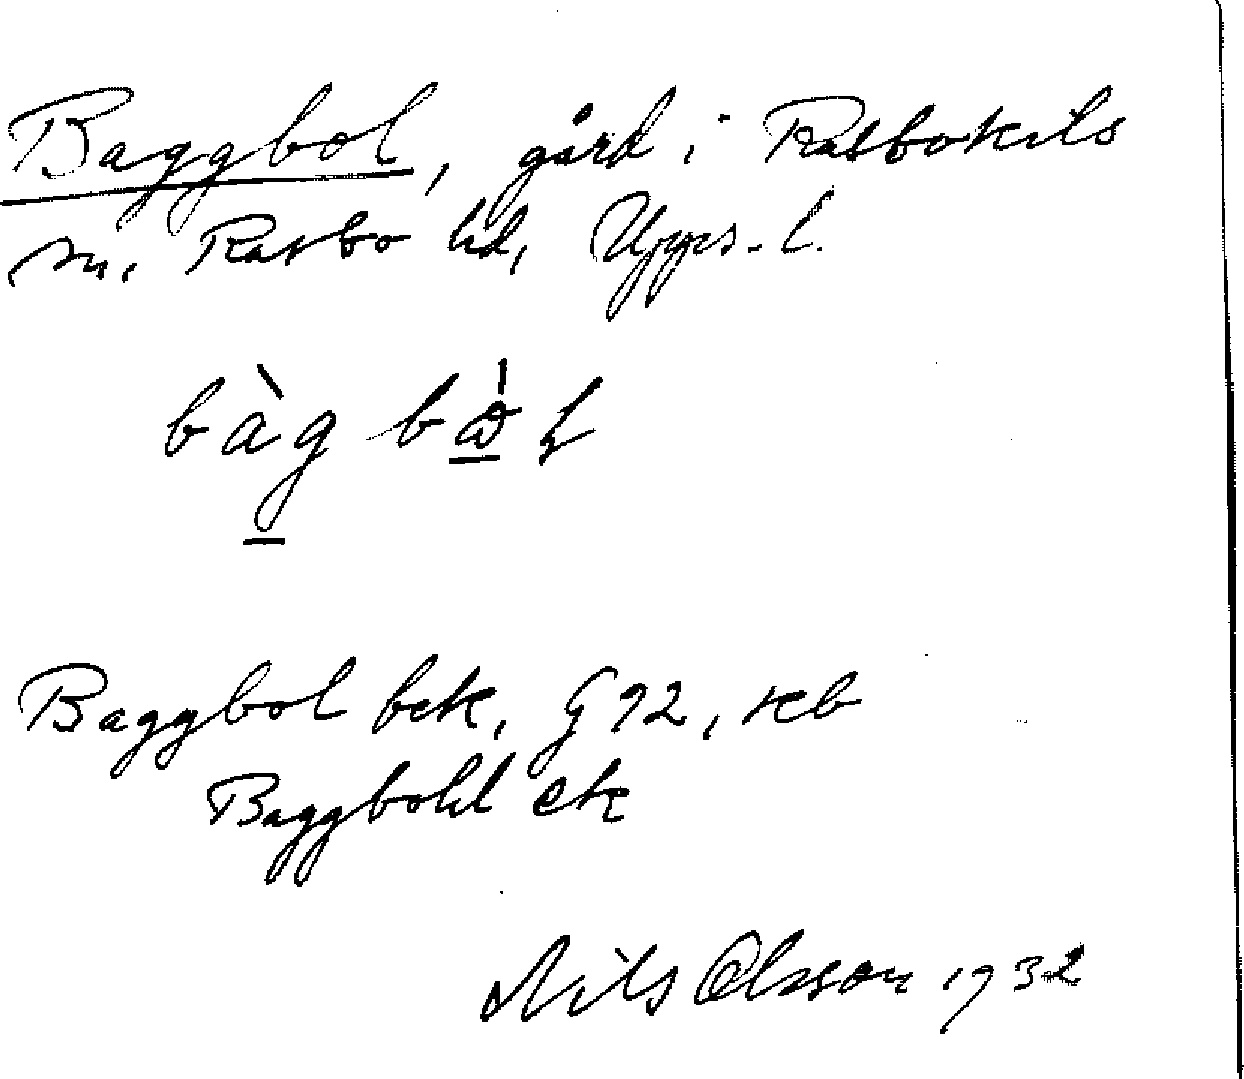 Baggbol, gård i Rasbokils
sn, Rasbo hd, Upps. l.
bàg
Baggbol bek, G 92, kb
Baggbohl ek
Nils Olsson 1932